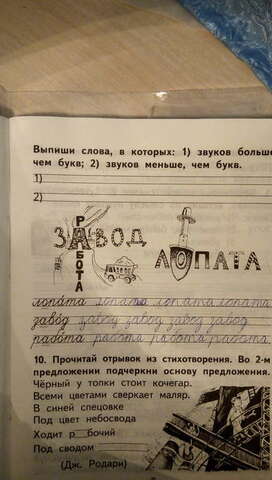 Выпиши слова, в которых: 1) звуков больше,
чем букв; 2) звуков меньше, чем букв.
1)
2)
РАБОТА
ЗАВОД
ЛОПАТА
лопата лопата лопата лопата
завод завод завод завод завод
работа работа работа работа
10. Прочитай отрывок из стихотворения. Во 2-м
предложении подчеркни основу предложения.
Чёрный у топки стоит кочегар.
Всеми цветами сверкает маляр.
В синей спецовке
Под цвет небосвода
Ходит р__бочий
Под сводом
(Дж. Родари)